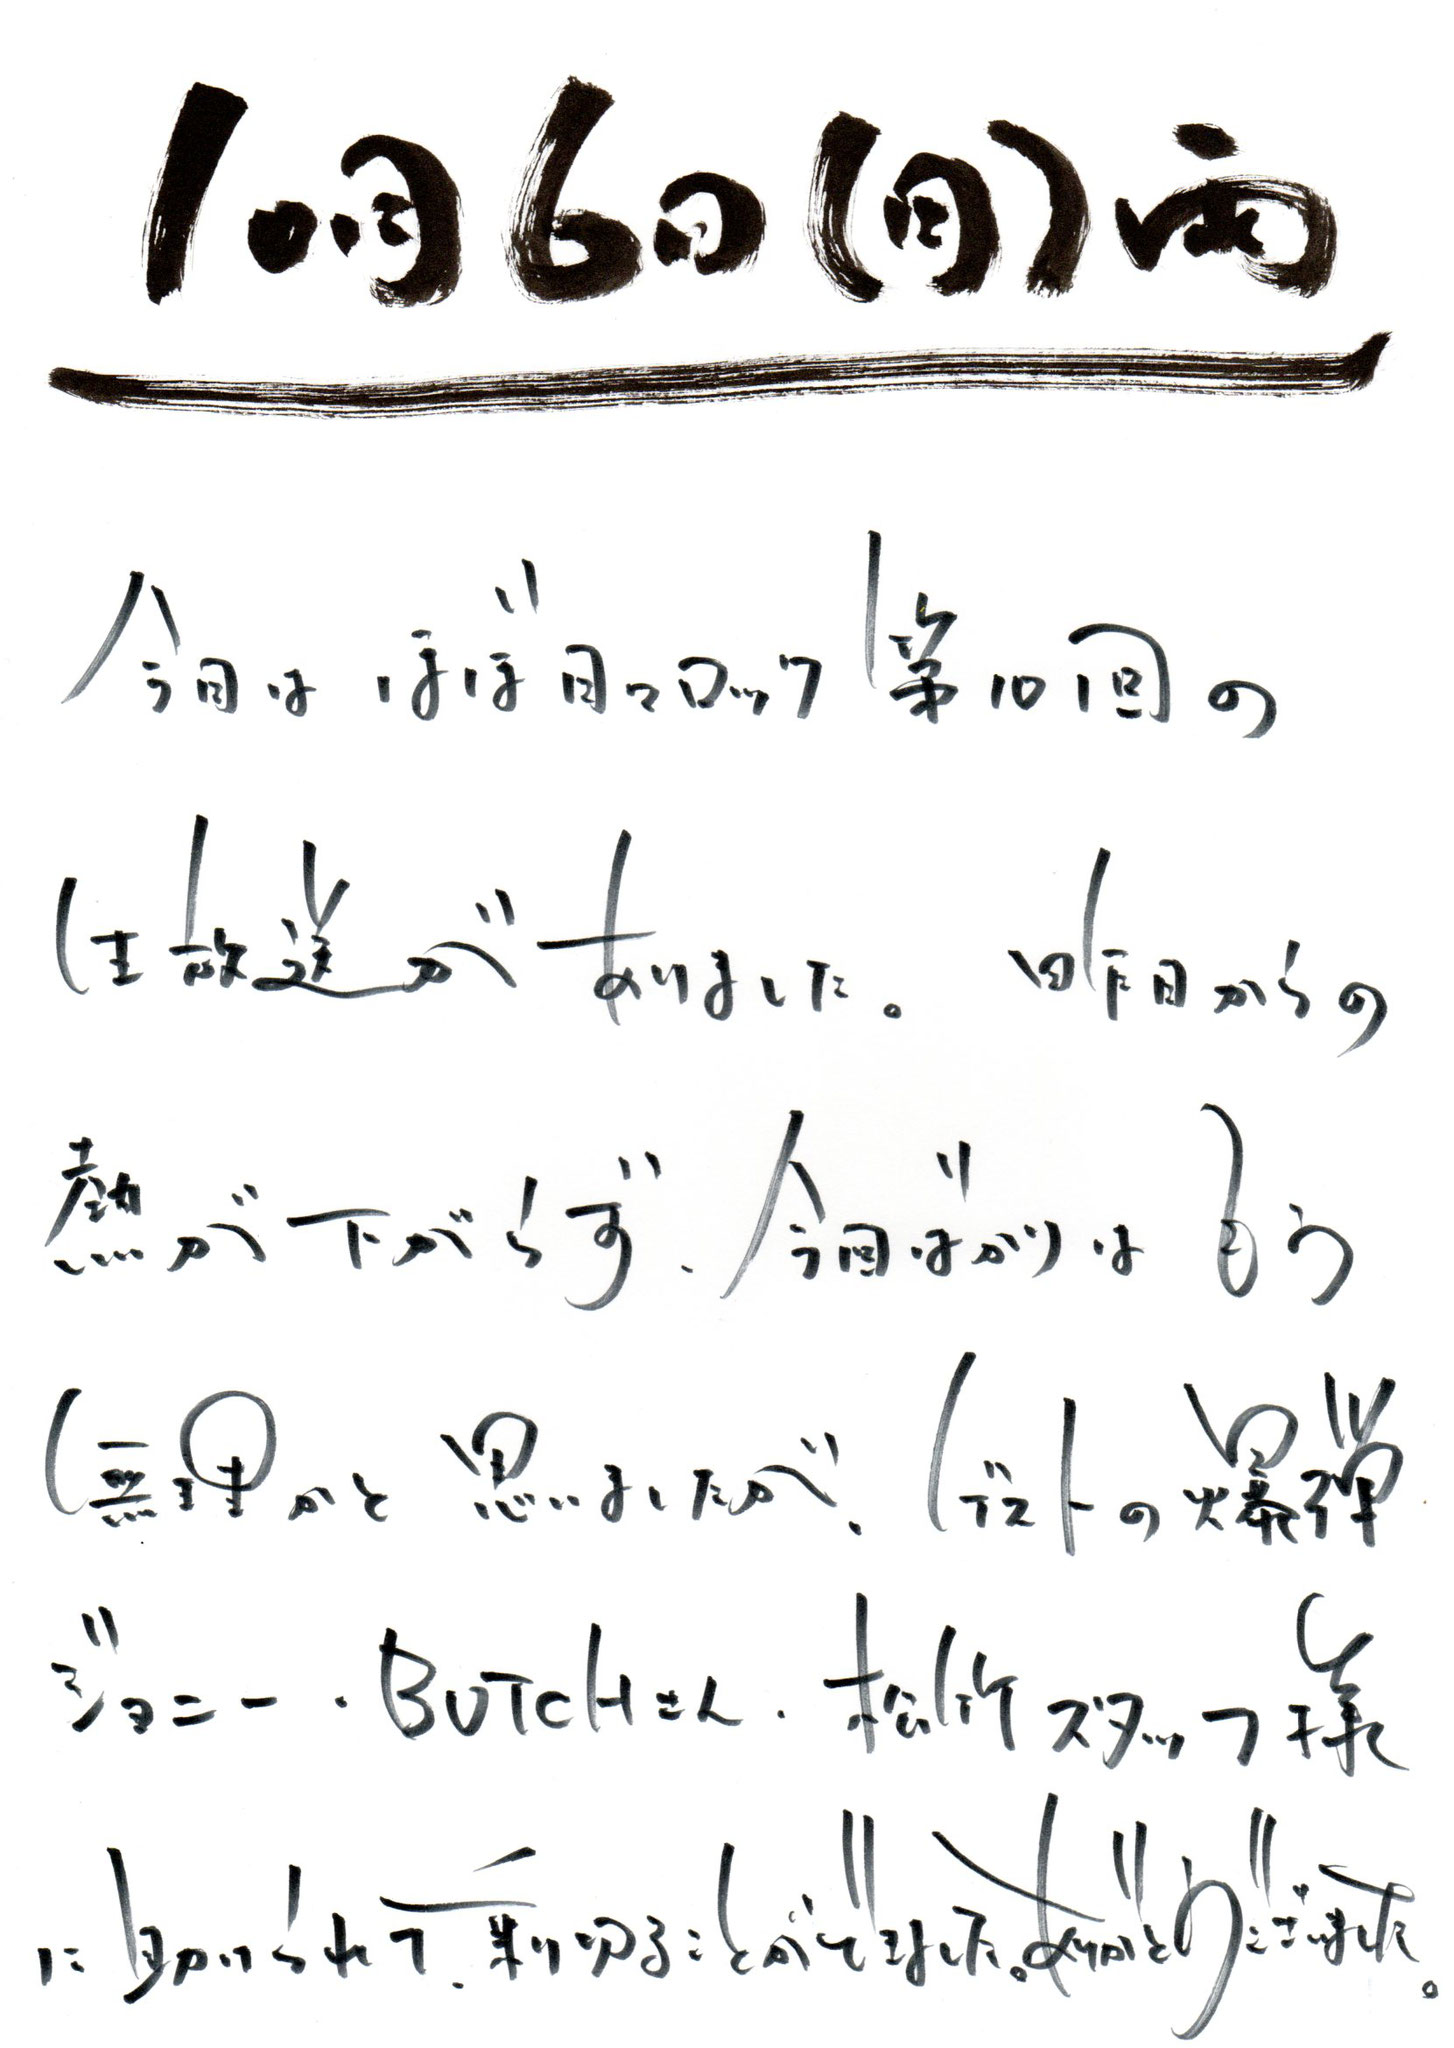 10月6日(月)雨
今日は ほぼ日マロック 第10回の
生放送がありました。 昨日からの
熱が下がらず、今回ばかりは もう
無理かと 思いましたが、ゲストの爆弾
ジョニー・BUTCHさん、 スタッフ様
に助けられて、乗り切ることができました。ありがとうございました。